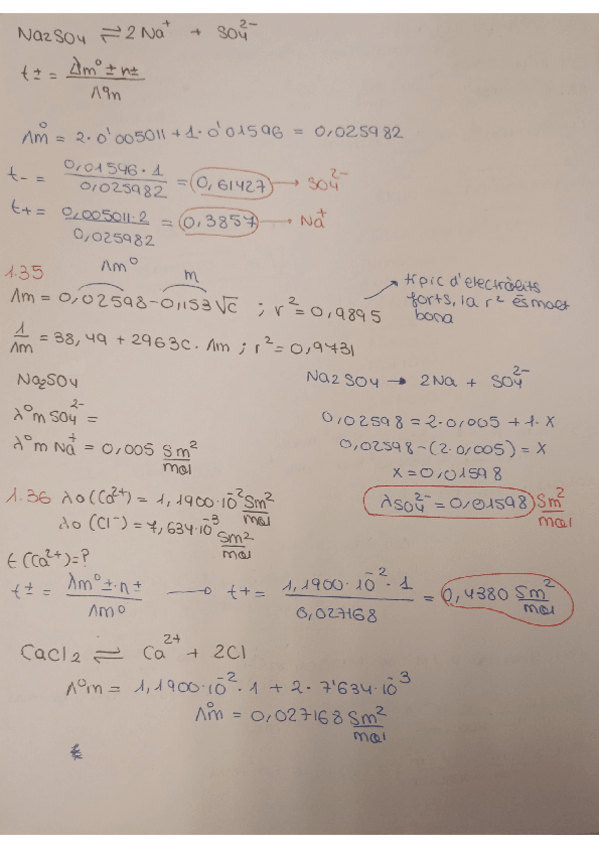 Na2SO4 ⇌ 2Na⁺ + SO4²⁻
t± = λm°± n± / Λ°m
Λm° = 2·0'005011 + 1·0'01596 = 0,025982
t- = 0,01596·1 / 0,025982 = 0,61427 → SO4²⁻
t+ = 0,005011·2 / 0,025982 = 0,3857 → Na⁺
1.35 Λm° m
Λm = 0,02598 - 0,1153√c ; r² = 0,9895
típic d'electròlits
forts, la r² és molt
bona
1/Λm = 38,49 + 2963C·Λm ; r² = 0,9731
Na2SO4
λ°m SO4²⁻ =
λ°m Na⁺ = 0,005 Sm²/mol
Na2SO4 → 2Na + SO4²⁻
0,02598 = 2·0,005 + 1·x
0,02598-(2·0,005) = x
x = 0,01598
λSO4²⁻ = 0,01598 Sm²/mol
1.36 λo(Ca²⁺) = 1,1900·10⁻² Sm²/mol
λo(Cl⁻) = 7,634·10⁻³ Sm²/mol
t(Ca²⁺) = ?
t± = λm°±·n± / Λm° → t+ = 1,1900·10⁻²·1 / 0,027168 = 0,4380 Sm²/mol
CaCl2 ⇌ Ca²⁺ + 2Cl
Λ°m = 1,1900·10⁻²·1 + 2·7'634·10⁻³
Λm° = 0,027168 Sm²/mol